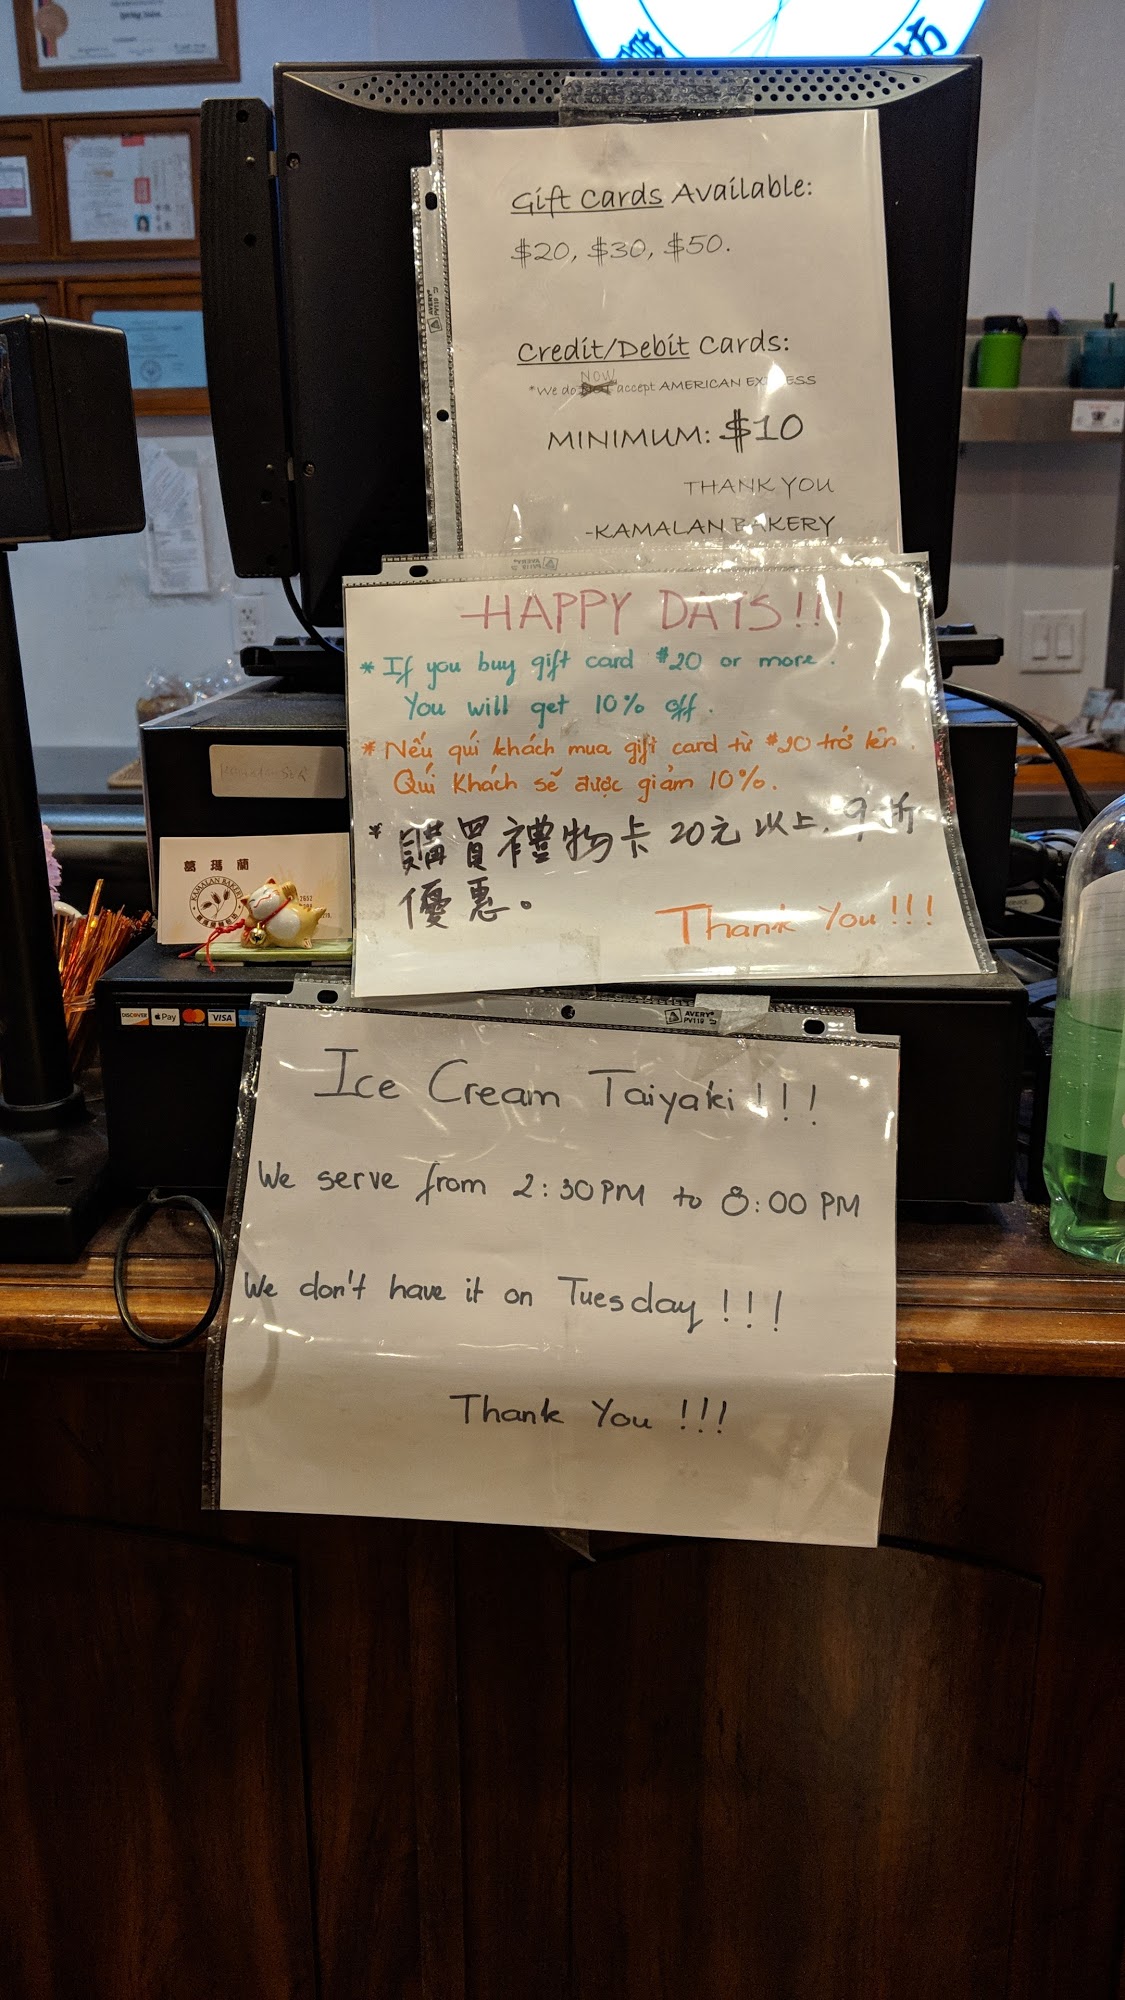 坊
Gift Cards Available:
$20, $30, $50.
Credit/Debit Cards:
*We do NOW accept AMERICAN EXPRESS
MINIMUM: $10
THANK YOU
-KAMALAN BAKERY
AVERY®
PV119
HAPPY DAYS!!!
* If you buy gift card $20 or more.
You will get 10% off.
* Nếu quí khách mua gift card từ $20 trở lên.
Quí Khách sẽ được giảm 10%.
* 購買禮物卡 20元 以上, 9折
優惠。
Thank You!!!
葛瑪蘭
KAMALAN BAKERY
DISCOVER Pay VISA
AVERY®
PV119
Ice Cream Taiyaki!!!
We serve from 2:30PM to 8:00 PM
We don't have it on Tuesday!!!
Thank You!!!